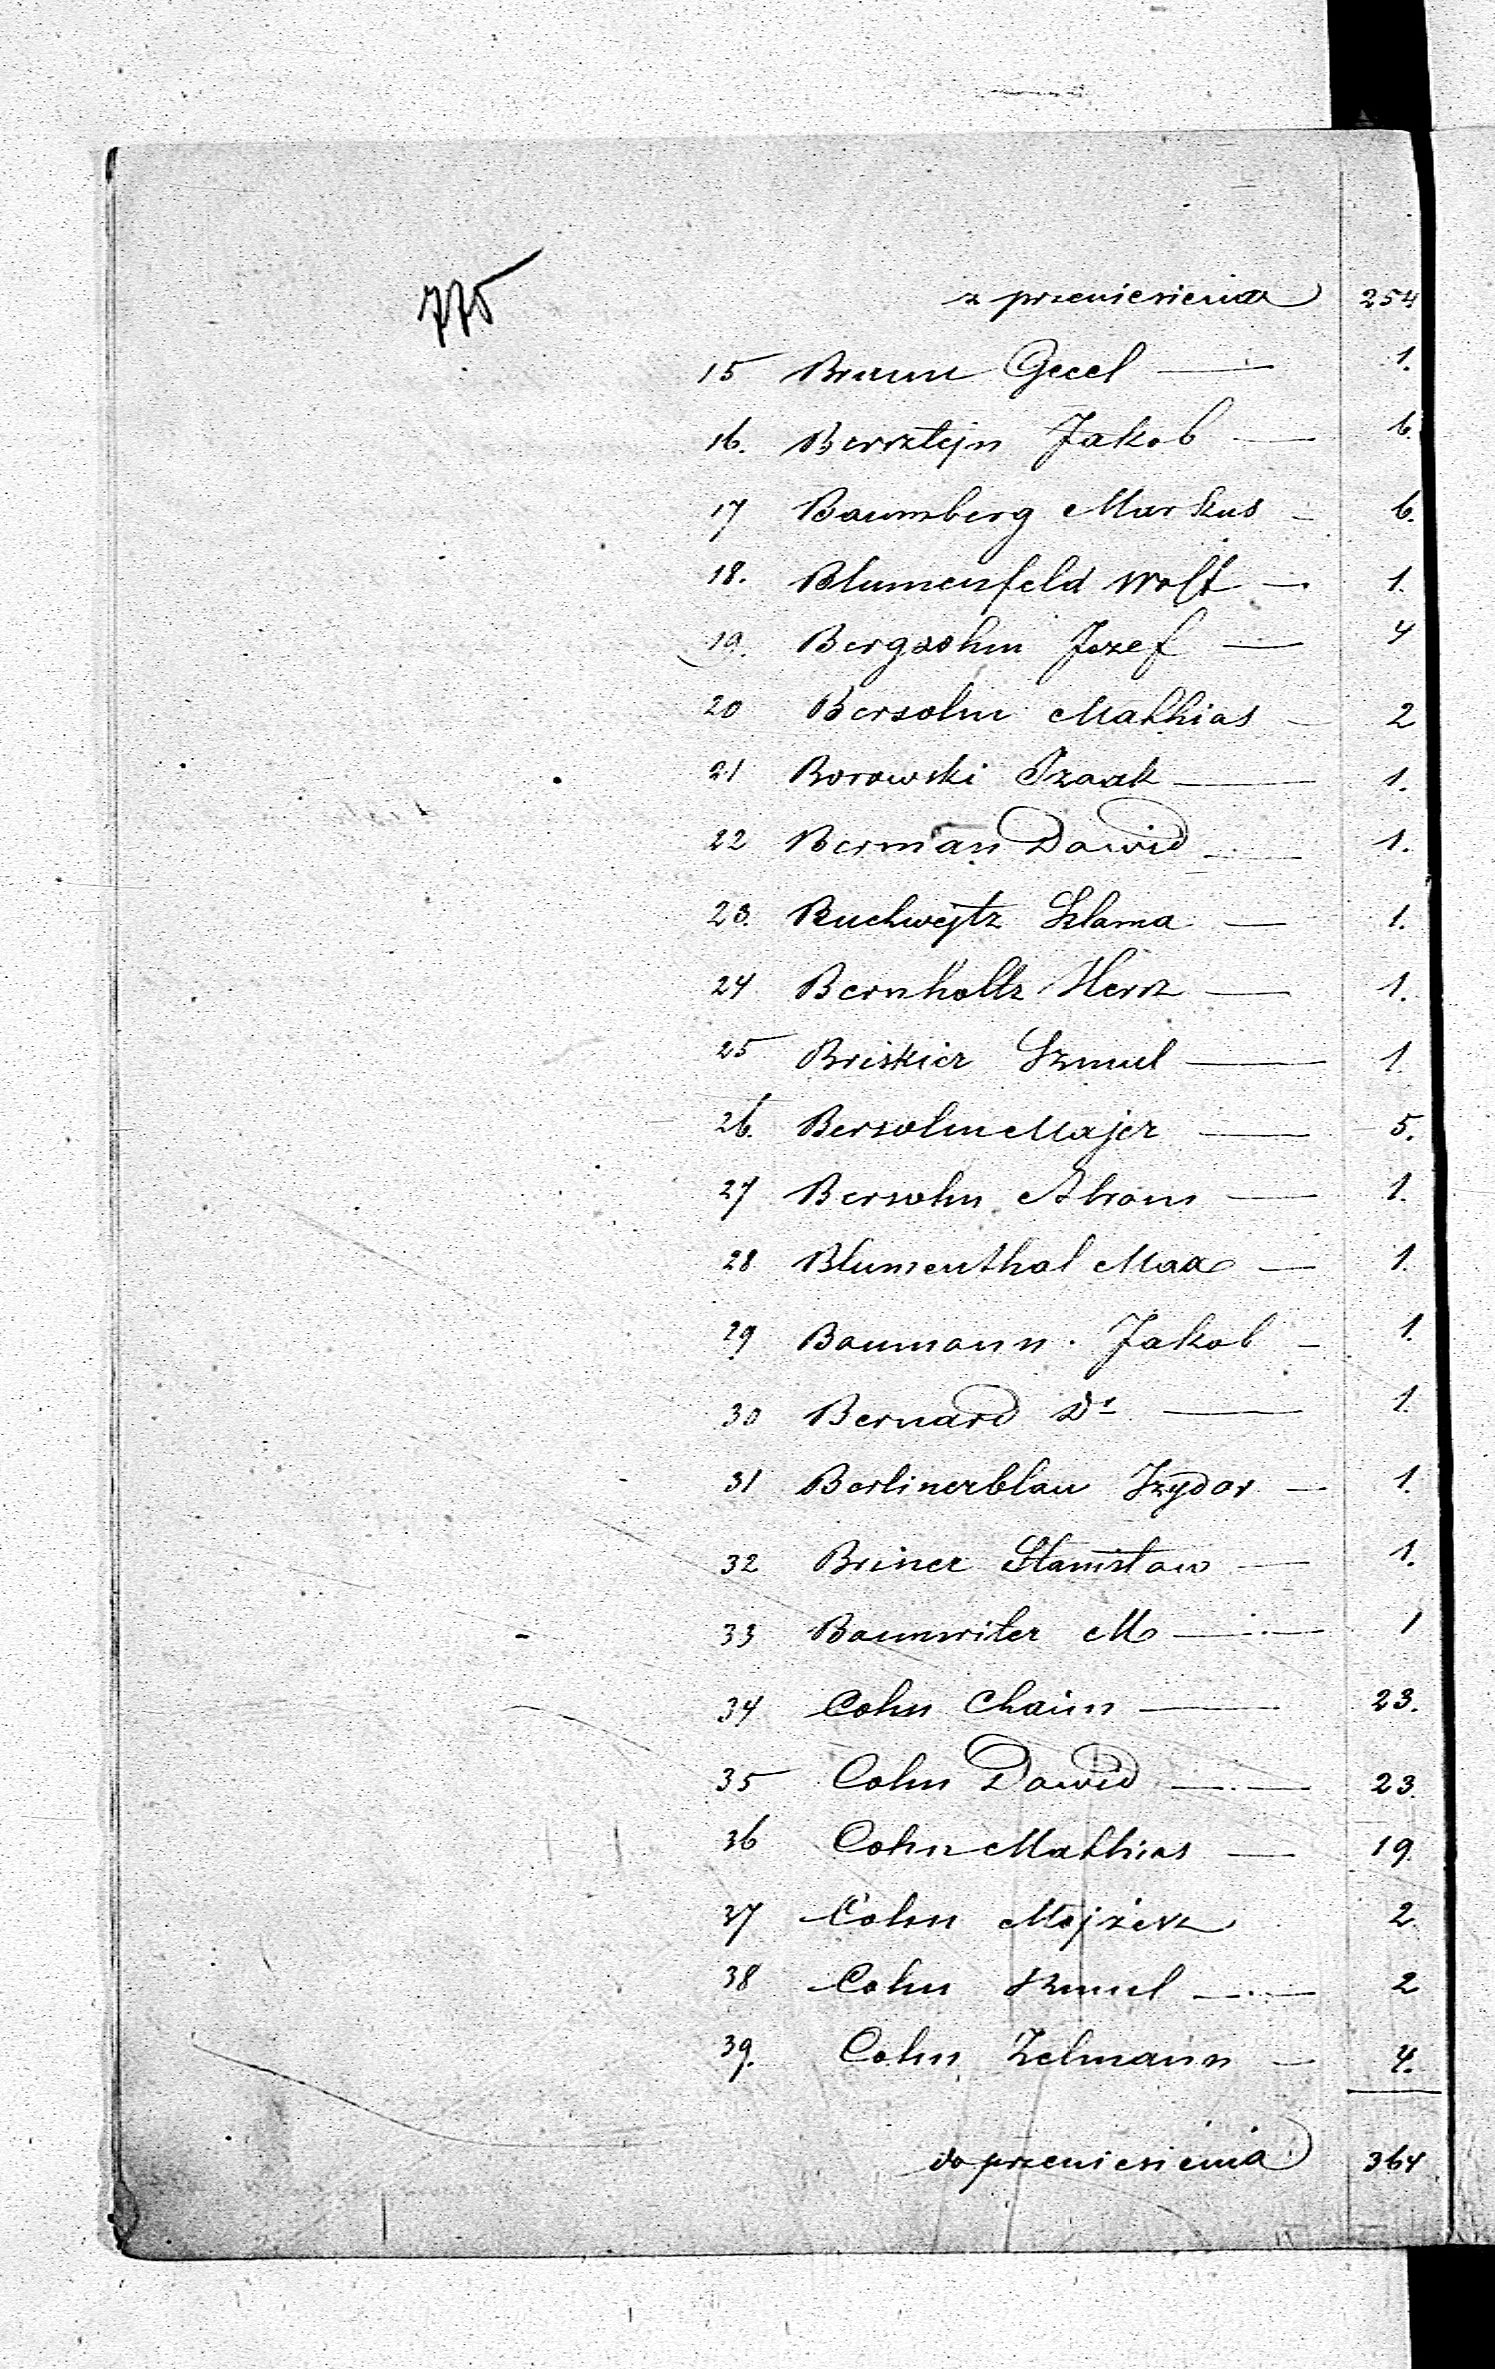 775
z przeniesienia 254
15 Braun Gecel — 1.
16. Bersztejn Jakob — 6.
17 Baumberg Markus — 6.
18. Blumenfeld Wolf — 1.
19. Bergsohn Jozef — 4
20 Bersohn Mathias — 2
21 Borowski Izaak — 1.
22 Berman Dawid — 1.
23. Buchwejtz Szlama — 1.
24 Bernholtz Hersz — 1.
25 Briskier Szmul — 1.
26. Bersohn Majer — 5.
27 Bersohn Abram — 1.
28 Blumenthal Max — 1.
29 Baumann Jakob — 1.
30 Bernard Dr — 1.
31 Berlinerblau Izydor — 1.
32 Briner Stanisław — 1.
33 Baumriter M — 1
34 Cohn Chaim — 23.
35 Cohn Dawid — 23.
36 Cohn Mathias — 19
37 Cohn Mojżesz 2
38 Cohn Szmul — 2
39. Cohn Zelmann — 4.
do przeniesienia 364